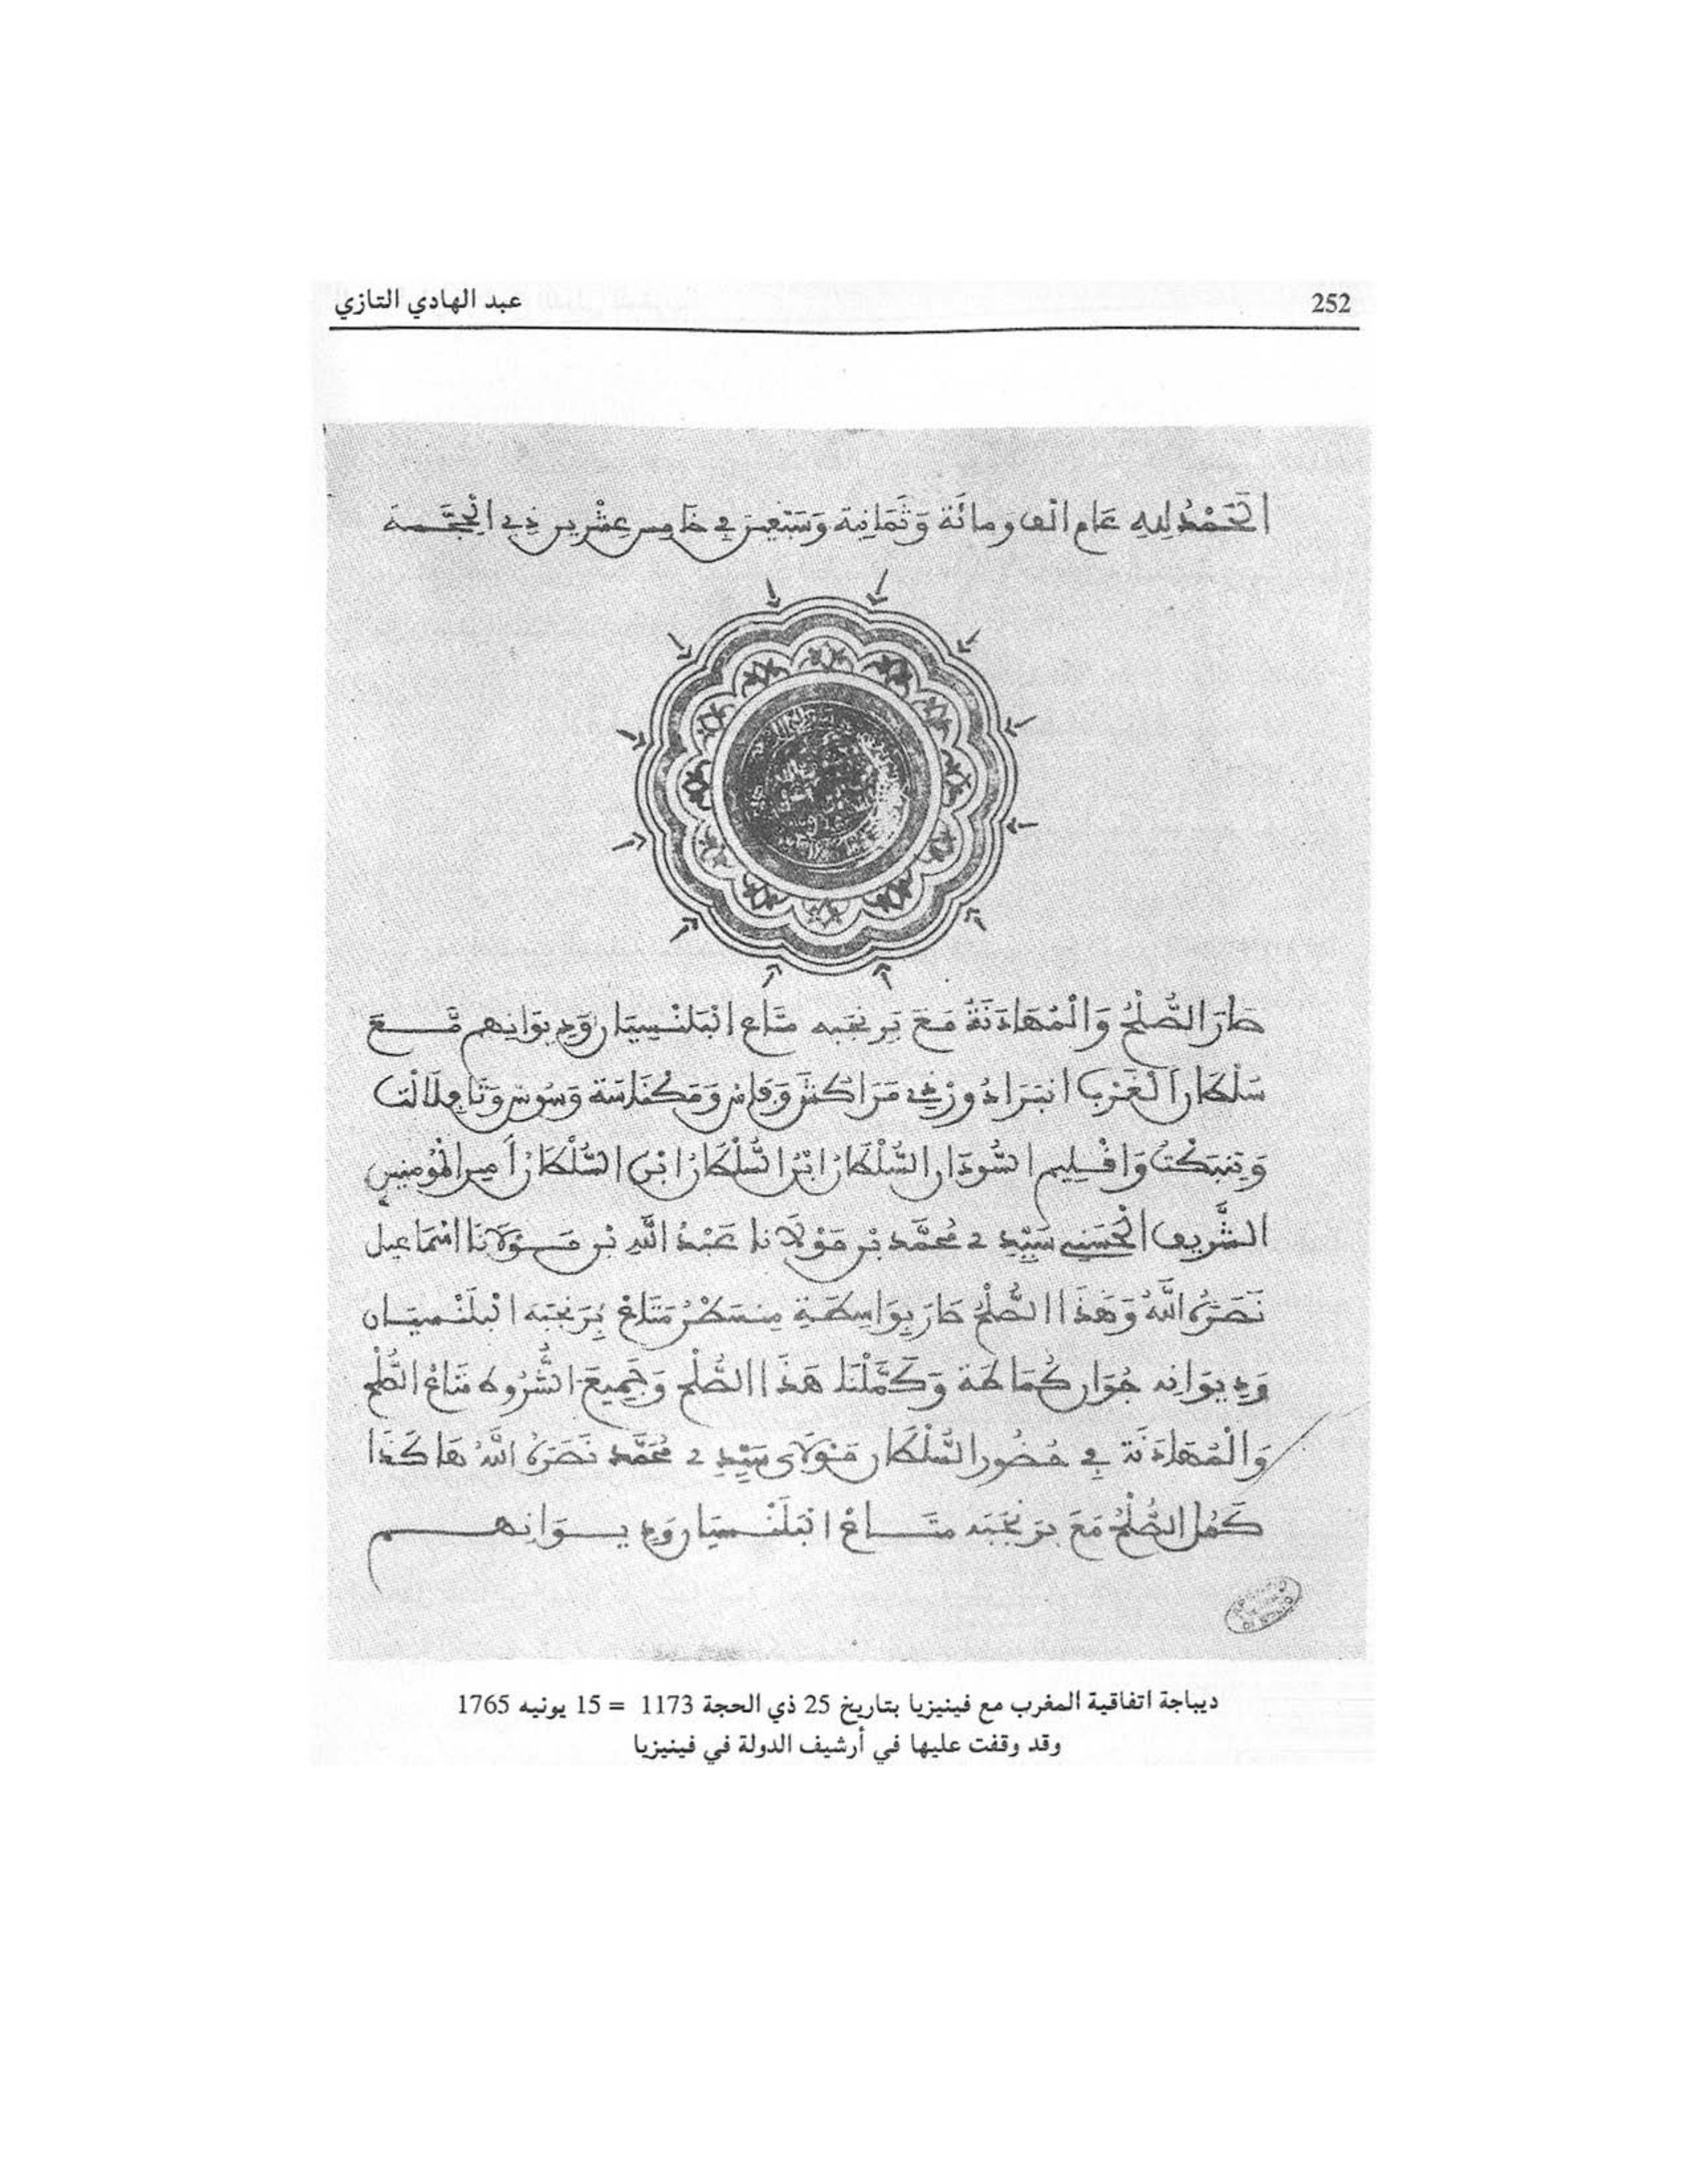 252
عبد الهادي التازي
الحَمْدُ لِلهِ عَام الف ومائَة وَثَمَانِية وَسَبْعِين فِي خَامِس عِشْرِين ذِي الْحِجَّـــة
صَارَ الصُّلْحُ وَالْمُهَادَنَةُ مَعَ بَرنجبه متاع الْبَلَنْـسِيَان وَدِيوَانِهم مَّـــعَ
سَلْطَان الْغَرْب انبَرَادُور فِي مَرَاكُش وَفَاس وَمَكْنَاسَة وَسُوس وَتَافِلَالْت
وَتِنبَكْتُ وَاقْـلِيم السُّودَان السُّلْطَانُ ابْنُ السُّلْطَانُ ابْن السُّلْطَانُ أَمير الْمُومنِين
الشَّرِيف الْحَسَنِي سَيِّدِي مُحَمَّد بْن مَوْلَانا عَبْدُ اللَّهِ بْن مَـوْلَانَا اسْمَاعيل
نَصَرَهُ اللَّهُ وَهَذَا الصُّلْحُ صَارَ بِوَاسِطَـةِ مِنسَطْرُ مَتَاعْ بَرَنجبَه الْبلَنْـسِيَان
وَدِيوَانِه جُوَان كُمَاطَة وَكَمَّلْنَا هَذَا الصُّلْح وَجَمِيعَ الشُّرُوط مَتَاعْ الصُّلْح
وَالْمُهَادَنَة فِي حُضُور السُّلْطَان مَوْلَاى سَيِّدِي مُحَمَّد نَصَرَهُ اللَّهُ هَا كَذَا
كَمُل الصُّلْحُ مَعَ بَرَنجَبَه متَـــاعْ الْبَلَنْـسِيَان وَدِيـــوَانِهـــم
ديباجة اتفاقية المغرب مع فينيزيا بتاريخ 25 ذي الحجة 1173 = 15 يونيه 1765
وقد وقفت عليها في أرشيف الدولة في فينيزيا